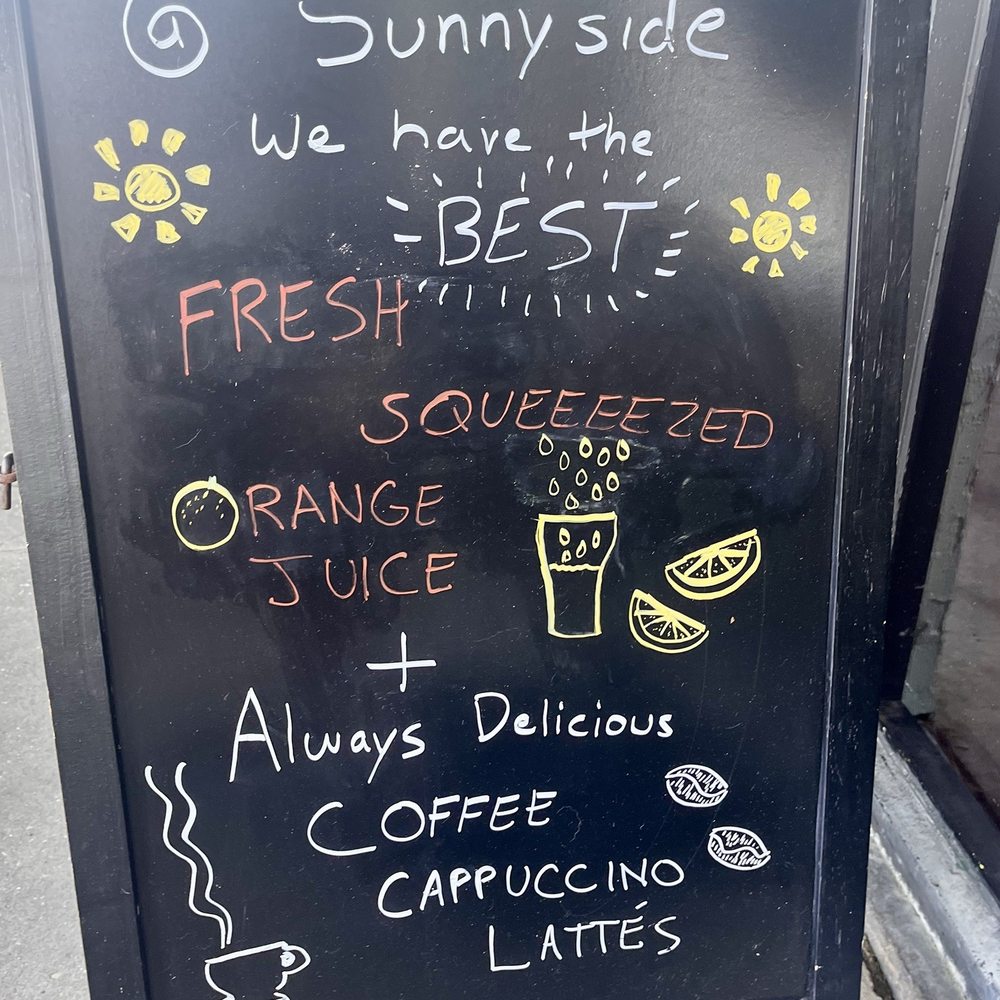 @ Sunnyside
We have the
BEST
FRESH
SQUEEEEZED
ORANGE
JUICE
+
Always Delicious
COFFEE
CAPPUCCINO
LATTÉS